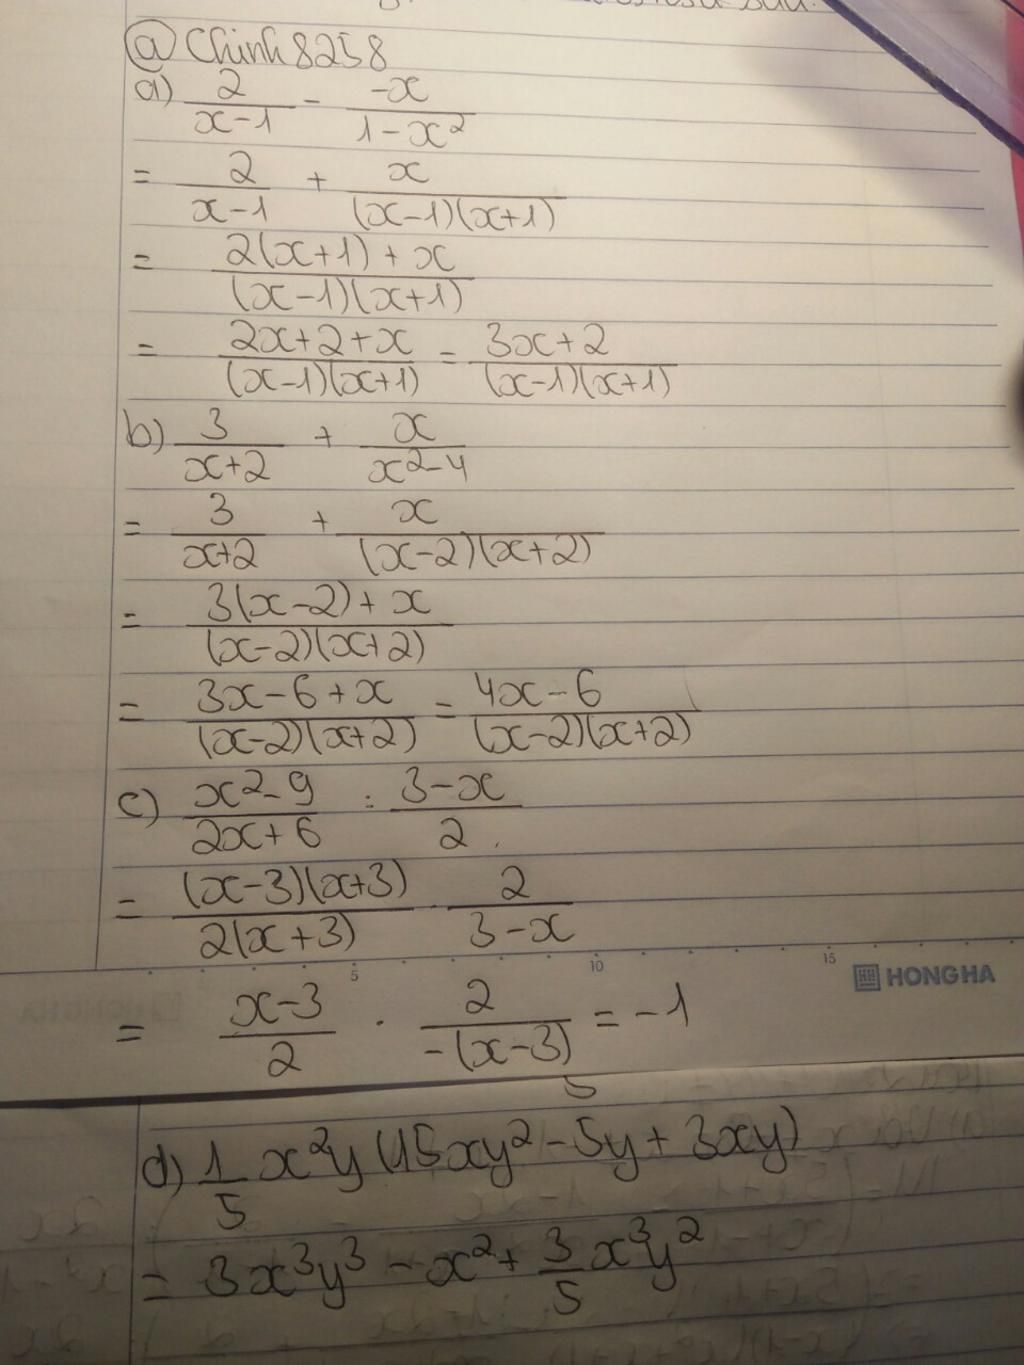 @ Chinh8258
a) 2/(x-1) - -x/(1-x²)
= 2/(x-1) + x/((x-1)(x+1))
= (2(x+1)+x)/((x-1)(x+1))
= (2x+2+x)/((x-1)(x+1)) = (3x+2)/((x-1)(x+1))
b) 3/(x+2) + x/(x²-4)
= 3/(x+2) + x/((x-2)(x+2))
= (3(x-2)+x)/((x-2)(x+2))
= (3x-6+x)/((x-2)(x+2)) = (4x-6)/((x-2)(x+2))
c) (x²-9)/(2x+6) : (3-x)/2
= ((x-3)(x+3))/(2(x+3)) . 2/(3-x)
5 10 15 HONG HA
= (x-3)/2 . 2/(-(x-3)) = -1
d) 1/5 x²y (15xy² - 5y + 3xy)
= 3x³y³ - x² + 3/5 x³y²